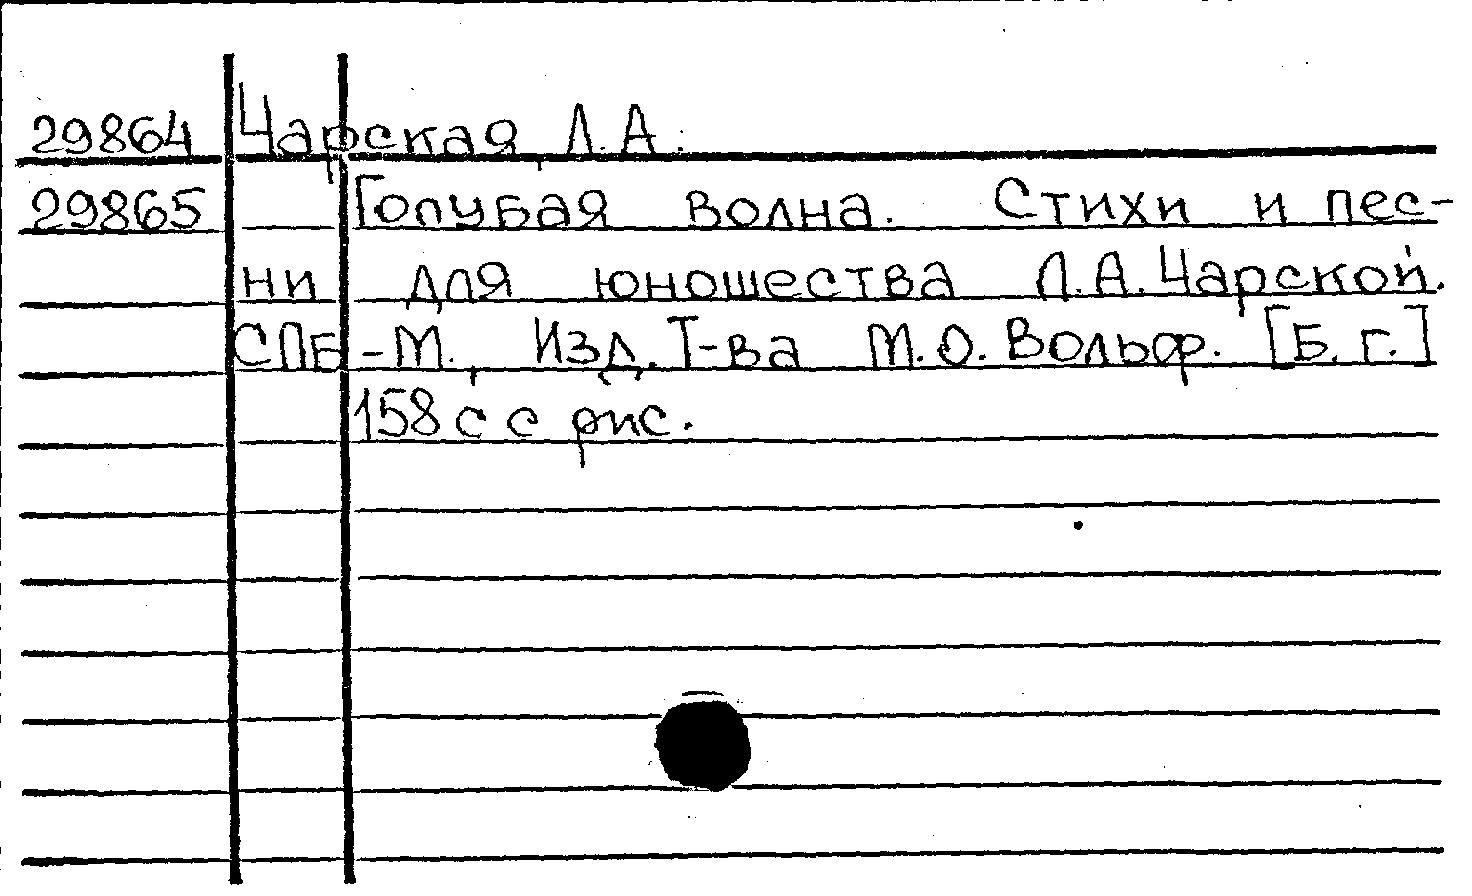 29864 Чарская, Л. А.
29865 Голубая волна. Стихи и пес-
ни для юношества Л. А. Чарской.
СПБ-М., Изд. Т-ва М. О. Вольф. [Б. г.]
158 с с рис.